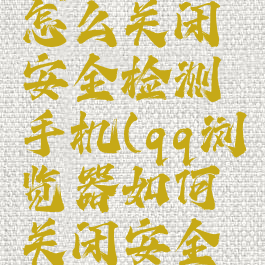 怎么关闭
安全检测
手机(qq浏
览器如何
关闭安全